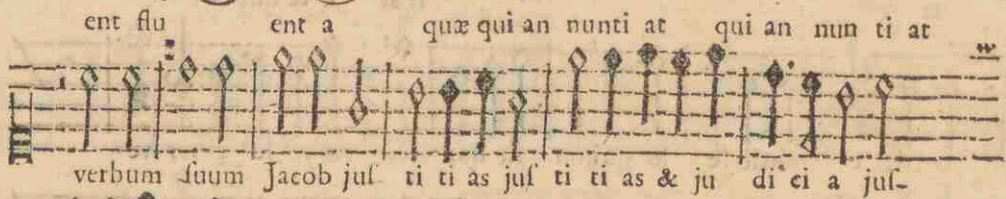 ent flu ent a quæ qui an nunti at qui an nun ti at
verbum ſuum Jacob juſ ti ti as juſ ti ti as & ju di ci a juſ-